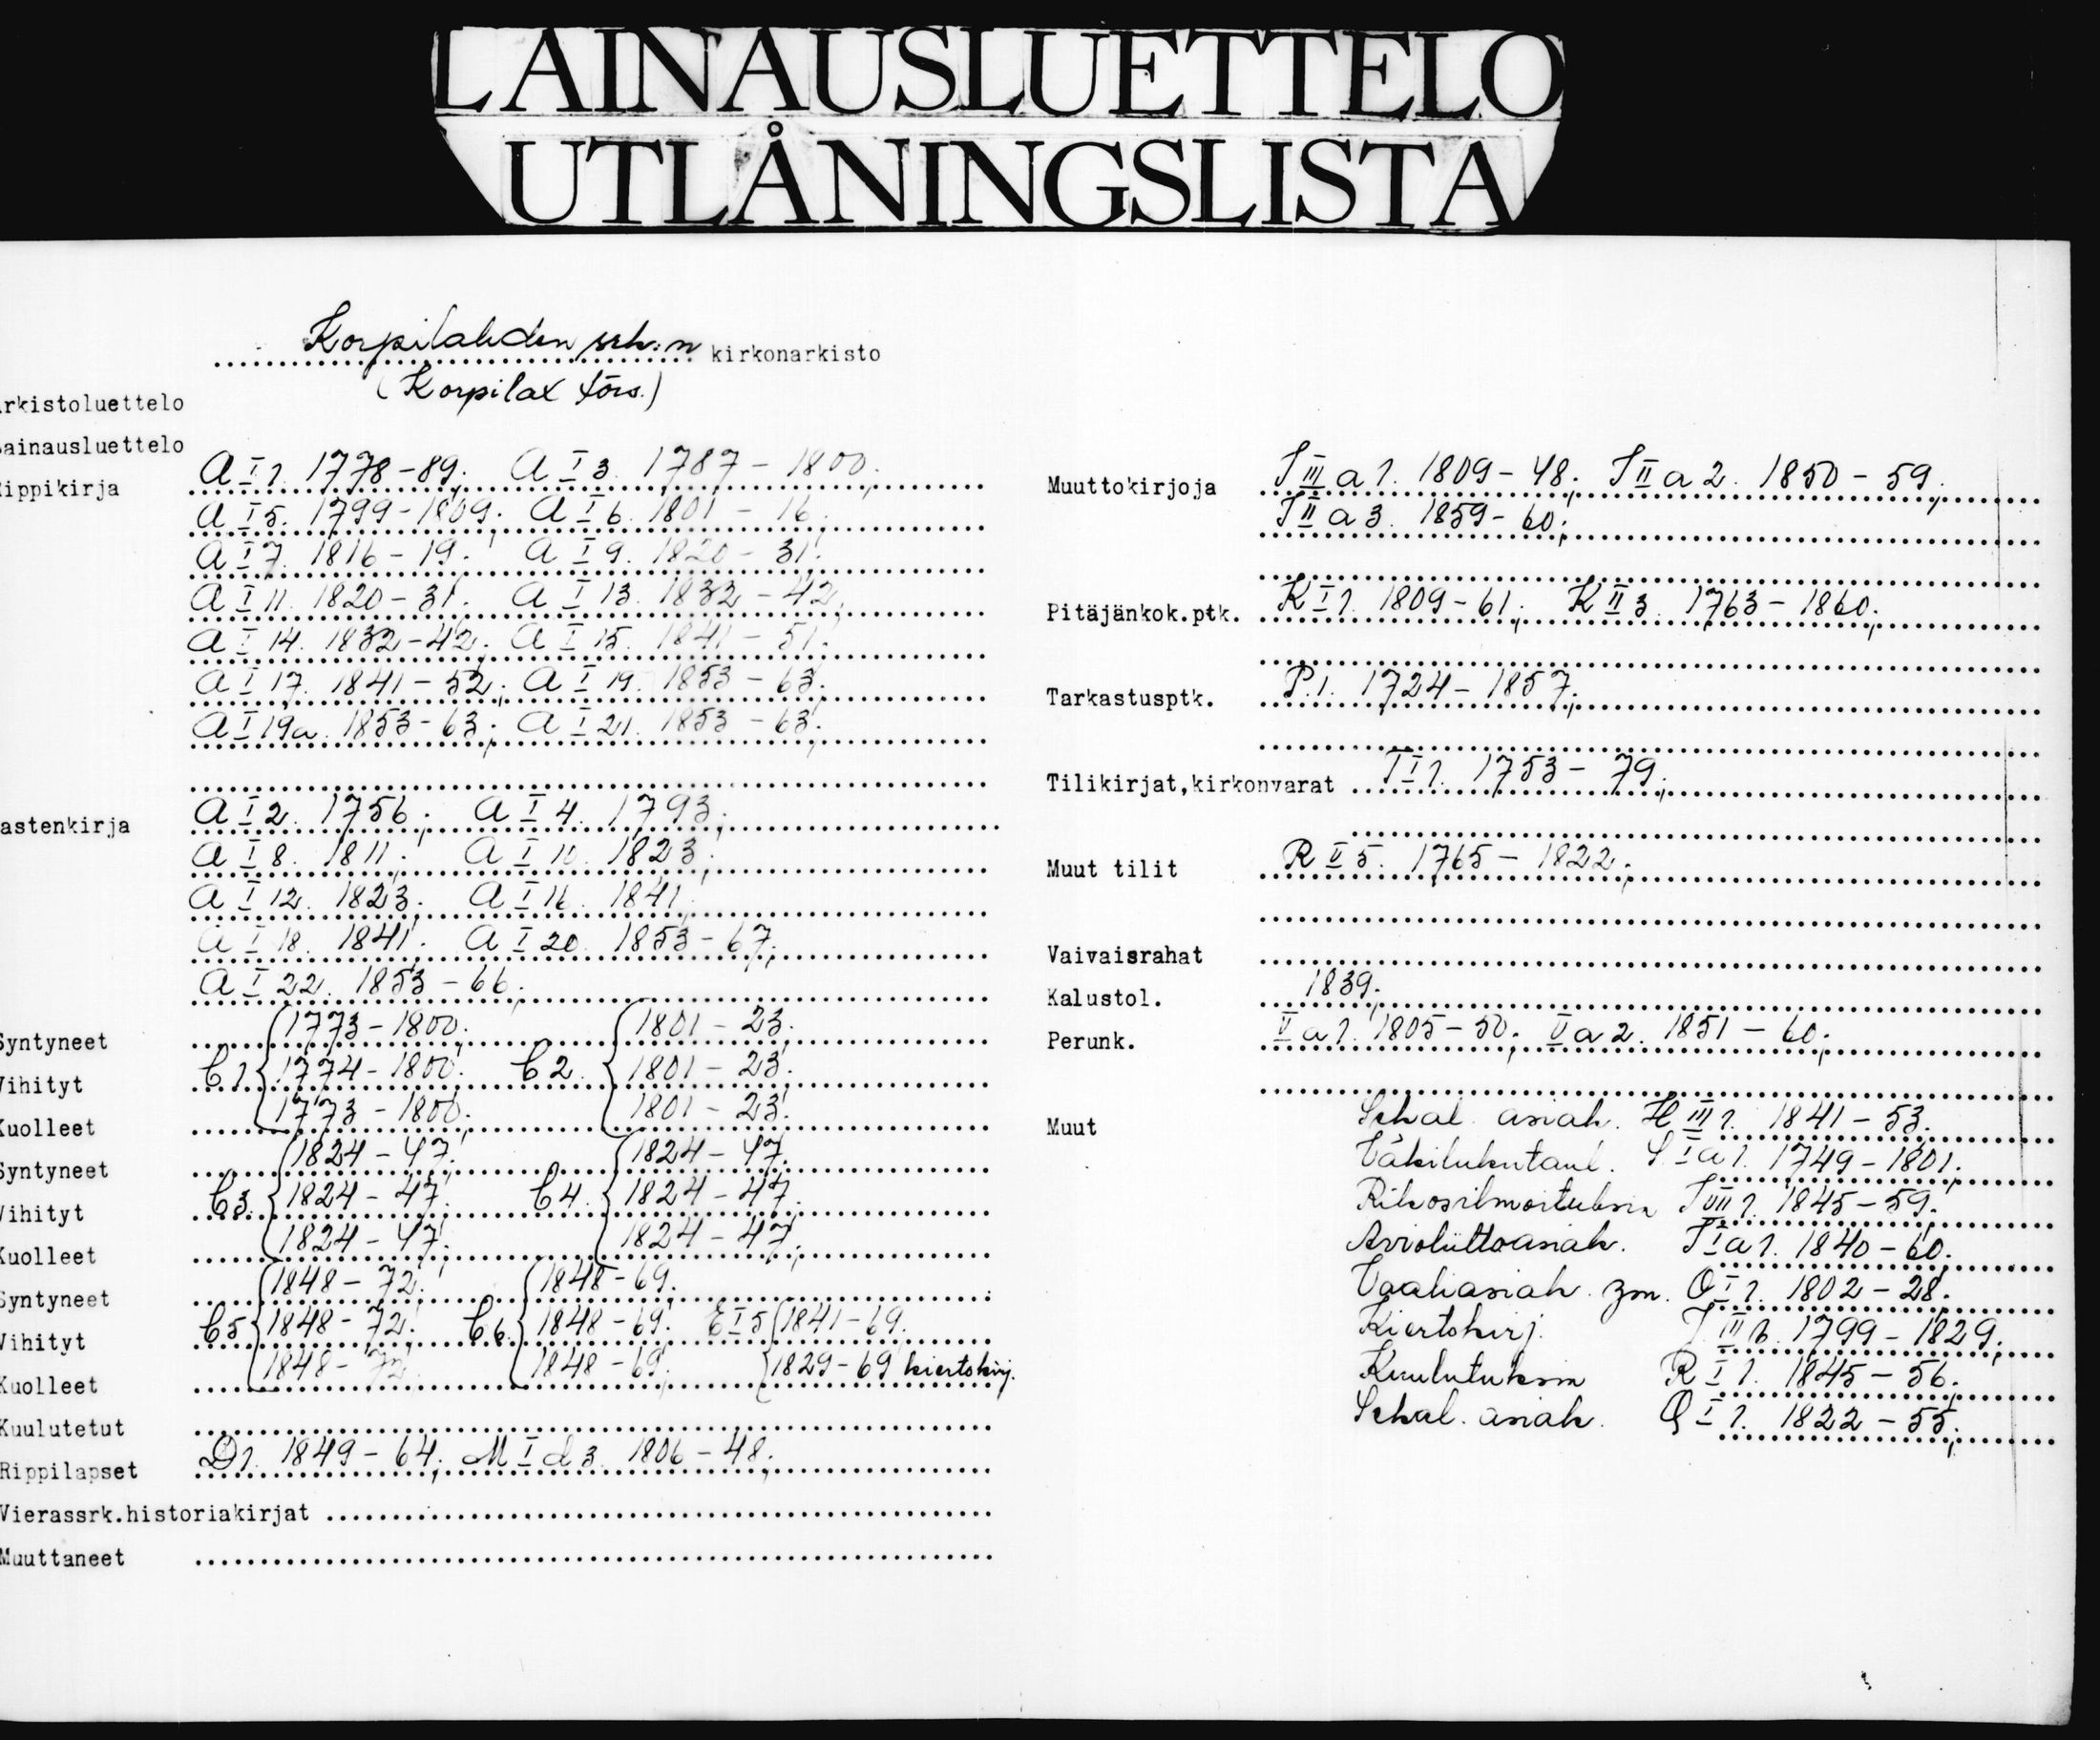 LAINAUSLUETTELO
UTLÅNINGSLISTA
Korpilahden srk:n kirkonarkisto
(Korpilax förs.)
rkistoluettelo
ainausluettelo
ippikirja A I 1. 1778-89; A I 3. 1787-1800;
A I 5. 1799-1809; A I 6. 1801-16;
A I 7. 1816-19; A I 9. 1820-31;
A I 11. 1820-31; A I 13. 1832-42;
A I 14. 1832-42; A I 15. 1841-51;
A I 17. 1841-52; A I 19. 1853-63;
A I 19a. 1853-63; A I 21. 1853-63;
astenkirja A I 2. 1756; A I 4. 1793;
A I 8. 1811; A I 10. 1823;
A I 12. 1823; A I 16. 1841;
A I 18. 1841; A I 20. 1853-67;
A I 22. 1853-66;
Syntyneet 1773-1800; 1801-23;
Vihityt C 1. 1774-1800; C 2. 1801-23;
Kuolleet 1773-1800; 1801-23;
Syntyneet 1824-47; 1824-47;
Vihityt C 3. 1824-47; C 4. 1824-47;
Kuolleet 1824-47; 1824-47;
Syntyneet 1848-72; 1848-69;
Vihityt C 5 1848-72; C 6. 1848-69; E I 5 1841-69.
Kuolleet 1848-72; 1848-69; 1829-69 kiertokirj.
Kuulutetut
Rippilapset D 1. 1849-64; M I d 3. 1806-48;
Vierassrk.historiakirjat
Muuttaneet
Muuttokirjoja J III a 1. 1809-48; J II a 2. 1850-59;
J II a 3. 1859-60;
Pitäjänkok.ptk. K I 1. 1809-61; K II 3. 1763-1860;
Tarkastusptk. P.1. 1724-1857;
Tilikirjat,kirkonvarat T I 1. 1753-79;
Muut tilit R II 5. 1765-1822;
Vaivaisrahat
Kalustol. 1839;
Perunk. V a 1. 1805-50; V a 2. 1851-60;
Muut Sekal. asiak. H III 1. 1841-53.
Väkilukutaul. S I a 1. 1749-1801;
Rikosilmoituksia J VII 1. 1845-59;
Avioliittoasiak. J I a 1. 1840-60;
Vaaliasiak. O I 1. 1802-28;
Kiertokirj. J III b. 1799-1829;
Kuulutuksia R I 1. 1845-56;
Sekal. asiak. Q I 1. 1822-55;